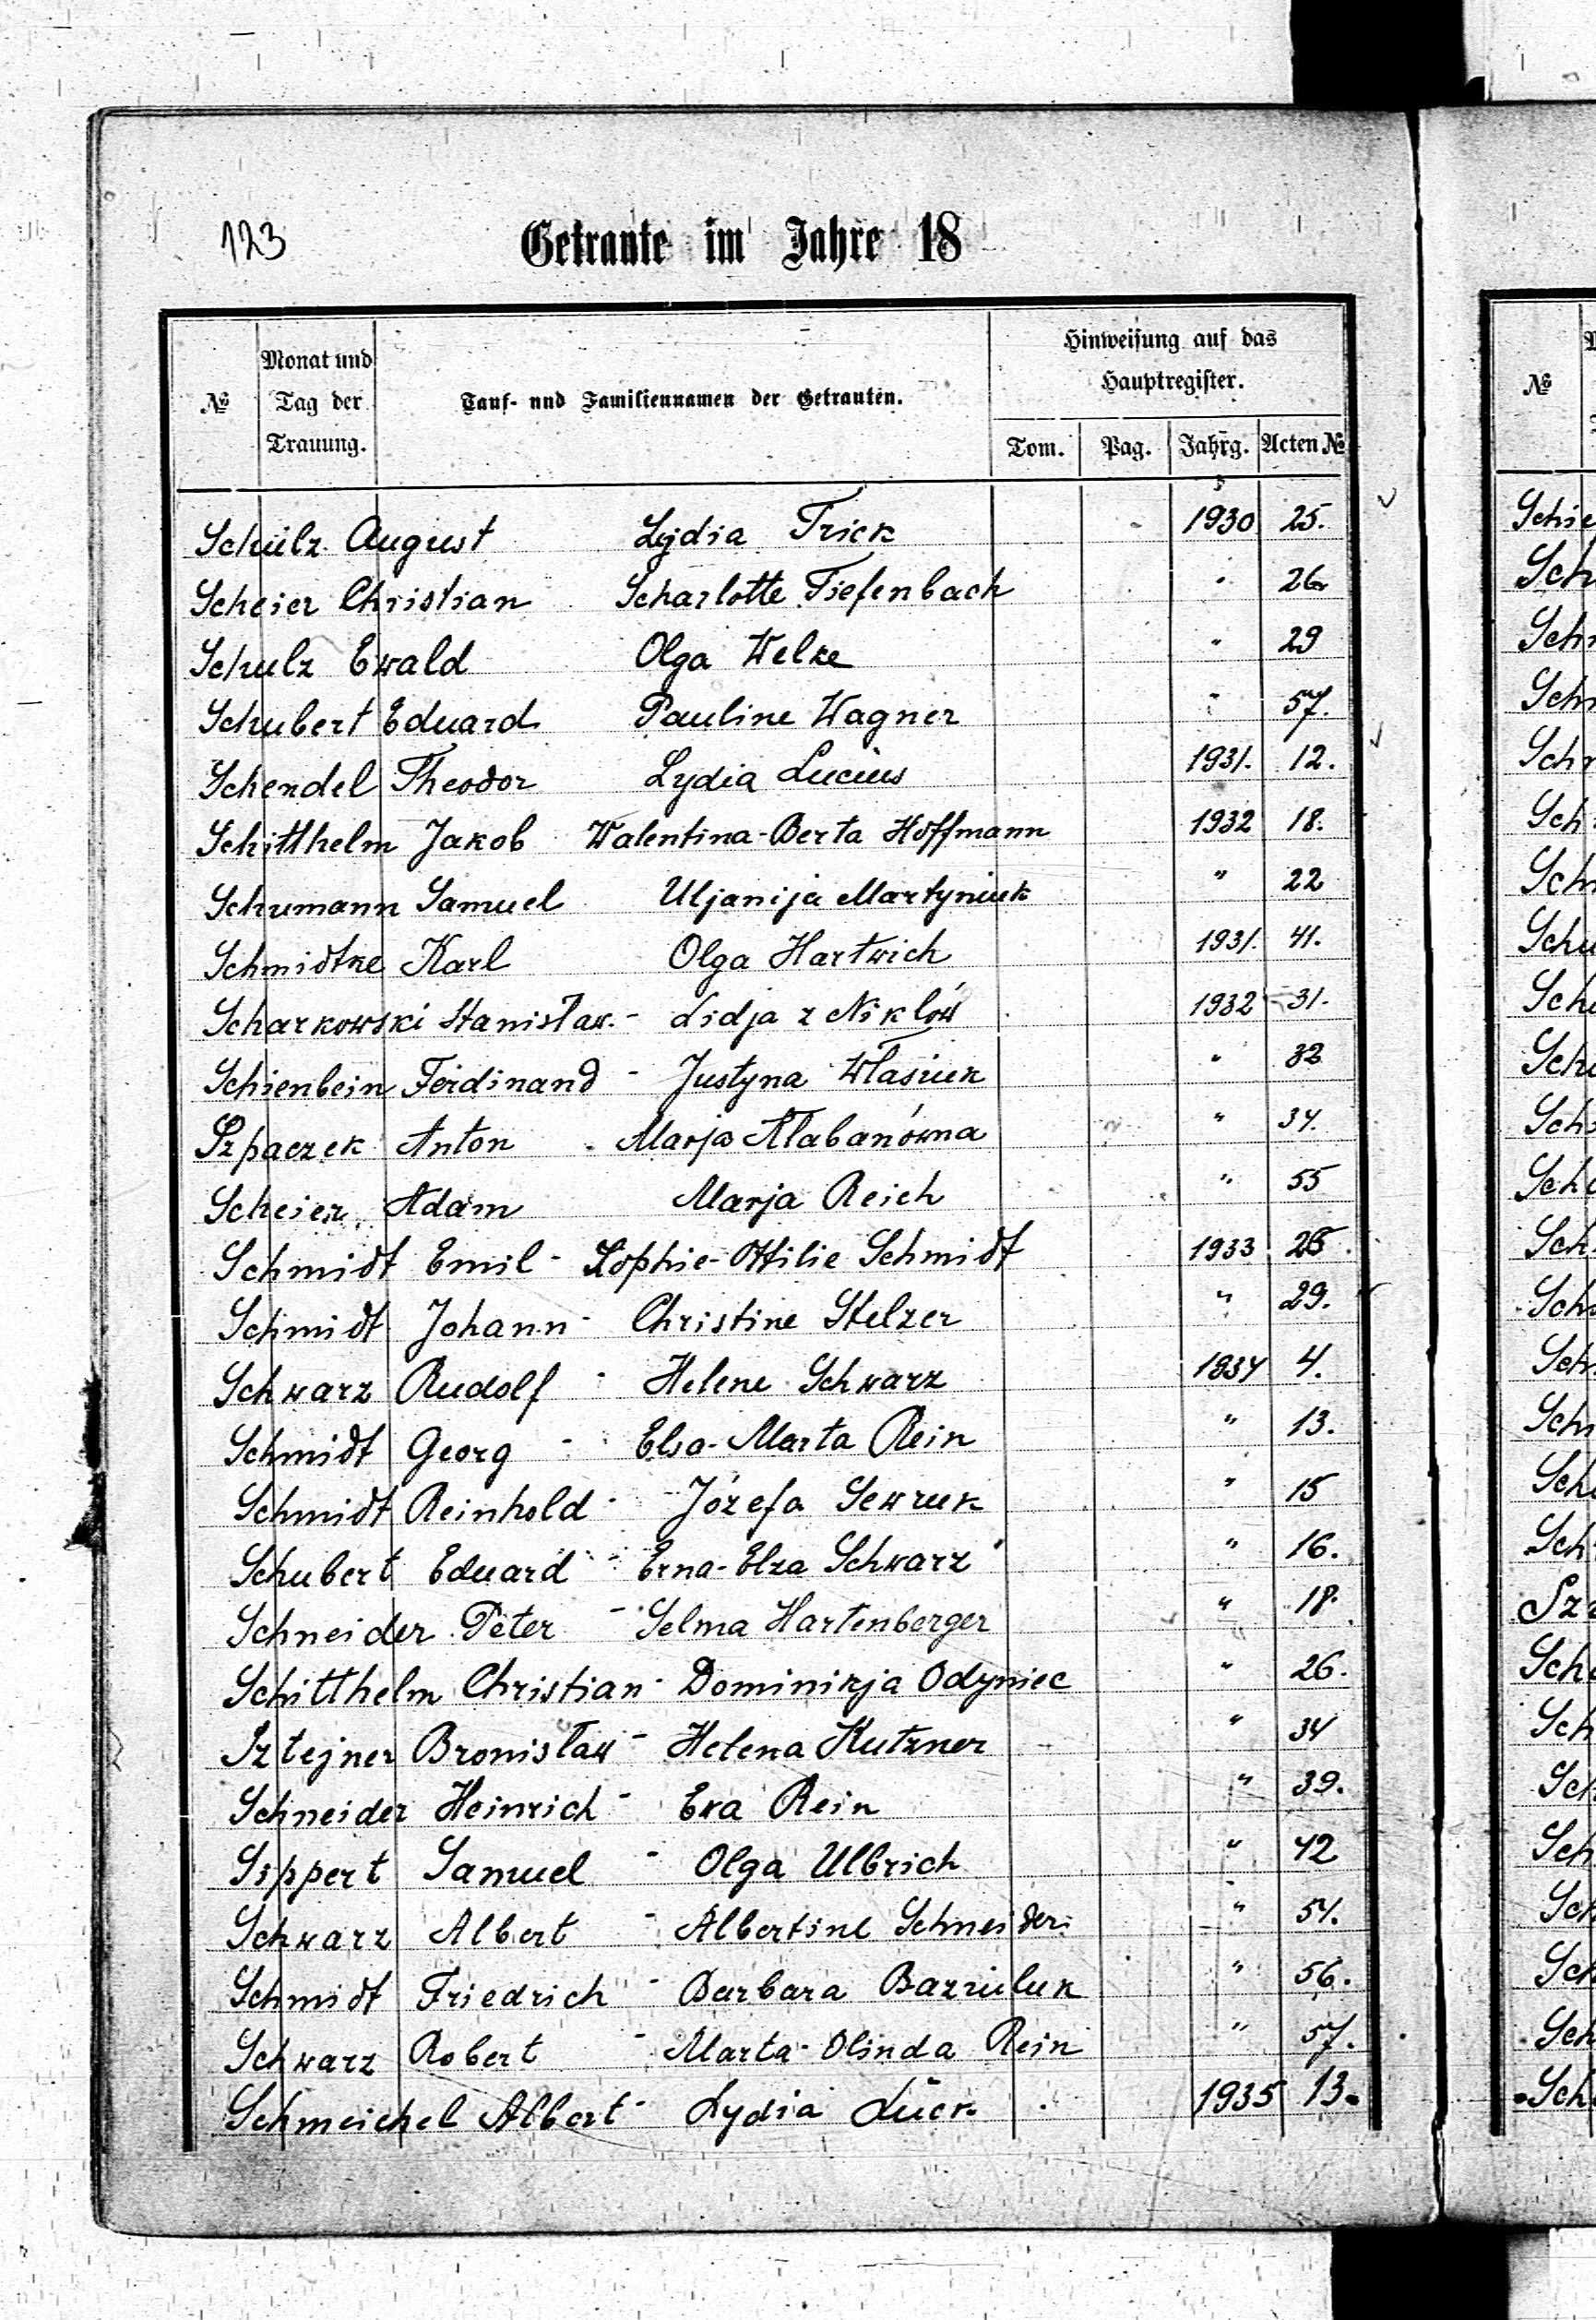 123
Getraute im Jahre 18
№ Monat und Tag der Trauung. Tauf- und Familiennamen der Getrauten. Hinweisung auf das Hauptregister.
Tom. Pag. Jahrg. Acten №
Schülz August Lydia Frick 1930 25.
Scheier Christian Scharlotte Tiefenbach " 26.
Schulz Ewald Olga Welke " 29
Schubert Eduard Pauline Wagner " 57.
Schendel Theodor Lydia Lucius 1931. 12.
Schitthelm Jakob Walentina-Berta Hoffmann 1932 18.
Schumann Samuel Uljanija Martyniuk " 22
Schmidtke Karl Olga Hartwich 1931. 41.
Scharkowski Stanisław. - Lidja z Niklów 1932 - 31.
Schienbein Ferdinand - Justyna Własiuk " 32
Szpaczek Anton - Marja Ałabanówna " 34.
Scheier, Adam Marja Reich " 55
Schmidt Emil - Sophie-Ottilie Schmidt 1933. 25.
Schmidt Johann - Christine Stelzer " 29.
Schwarz Rudolf - Helene Schwarz 1934 4.
Schmidt Georg - Elsa-Marta Rein " 13.
Schmidt Reinhold - Józefa Sewruk " 15
Schubert Eduard - Erna-Elza Schwarz " 16.
Schneider Peter - Selma Hartenberger " 18.
Schitthelm Christian - Dominikja Odyniec " 26.
Sztejner Bronisław - Helena Kutzner " 34
Schneider Heinrich - Ewa Rein " 39.
Sippert Samuel - Olga Ulbrich " 42
Schwarz Albert - Albertine Schneider " 54.
Schmidt Friedrich - Barbara Baziuluk " 56.
Schwarz Robert - Marta-Olinda Rein " 57.
Schmeichel Albert - Lydia Lück 1935 13.
№